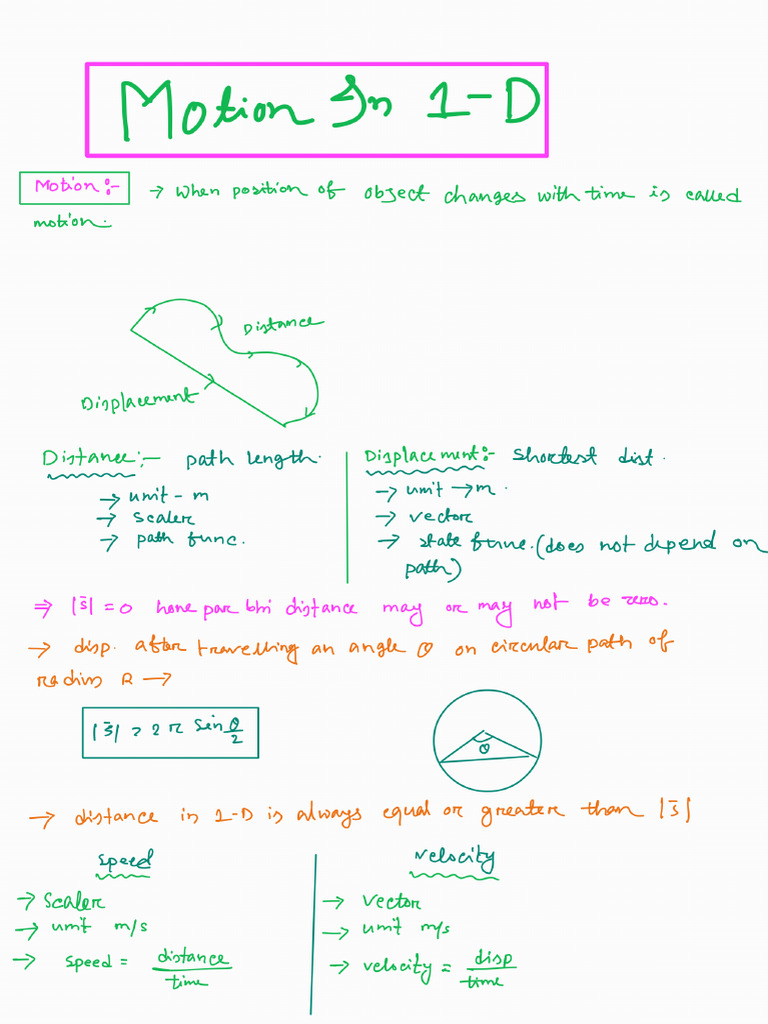 Motion In 1-D
Motion:- → When position of object changes with time is called
motion.
Distance
Displacement
Distance:- path length.
→ unit - m
→ scaler
→ path func.
Displacement:- Shortest dist.
→ unit → m.
→ vector
→ state func. (does not depend on
path)
⇒ |s̄| = 0 hone par bhi distance may or may not be zero.
→ disp. after travelling an angle θ on circular path of
radius R →
|s̄| = 2 r sin θ/2
θ
→ distance in 1-D is always equal or greater than |s̄|
speed
→ scaler
→ unit m/s
→ speed = distance/time
velocity
→ vector
→ unit m/s
→ velocity = disp/time